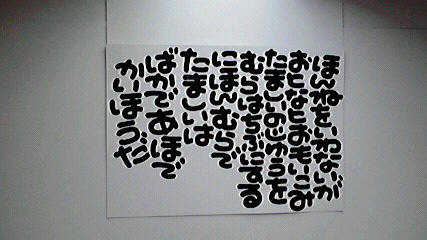 ほんねをいわないが
おとなとおもいこみ
たましいのじゆうを
むらはちぶにする
にほんむらで
たましいは
ばかであほで
かいほうだ